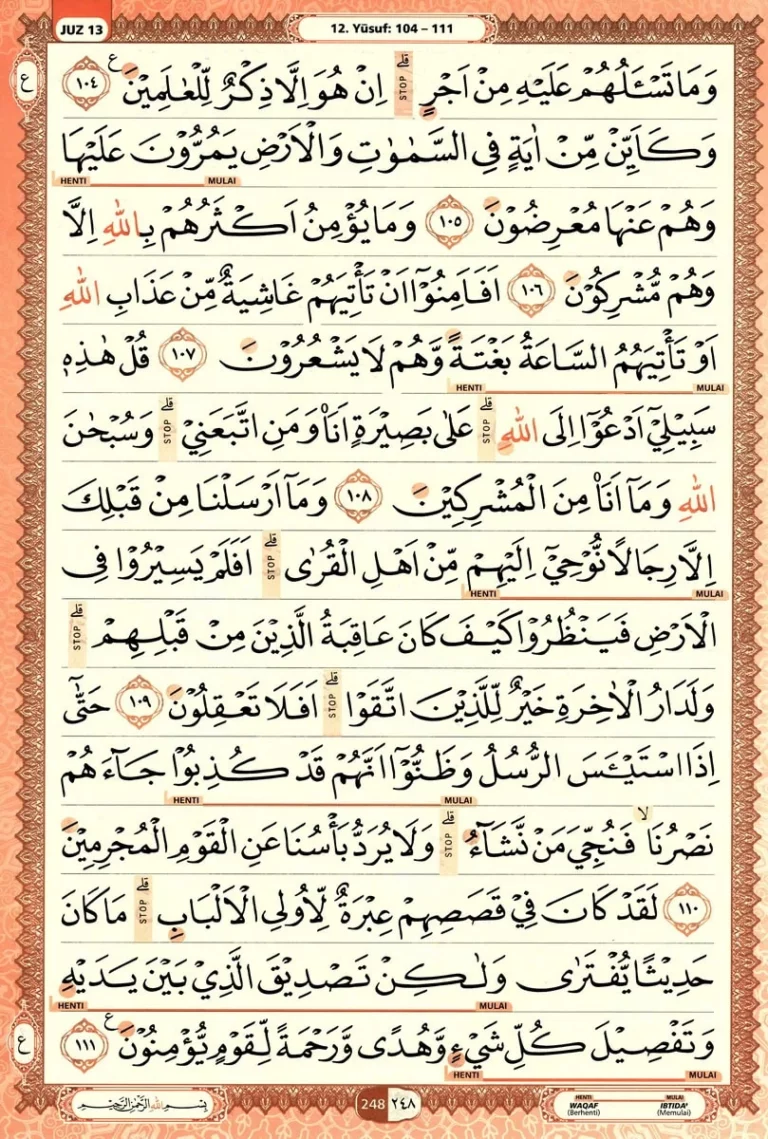 JUZ 13
12. Yūsuf: 104 – 111
ع
وَمَا تَسْـَٔلُهُمْ عَلَيْهِ مِنْ اَجْرٍ ۗ STOP اِنْ هُوَ اِلَّا ذِكْرٌ لِّلْعٰلَمِيْنَ ࣖ ١٠٤
وَكَاَيِّنْ مِّنْ اٰيَةٍ فِى السَّمٰوٰتِ وَالْاَرْضِ يَمُرُّوْنَ عَلَيْهَا
MULAI HENTI
وَهُمْ عَنْهَا مُعْرِضُوْنَ ١٠٥ وَمَا يُؤْمِنُ اَكْثَرُهُمْ بِاللّٰهِ اِلَّا
وَهُمْ مُّشْرِكُوْنَ ١٠٦ اَفَاَمِنُوْٓا اَنْ تَأْتِيَهُمْ غَاشِيَةٌ مِّنْ عَذَابِ اللّٰهِ
اَوْ تَأْتِيَهُمُ السَّاعَةُ بَغْتَةً وَّهُمْ لَا يَشْعُرُوْنَ ١٠٧ قُلْ هٰذِهٖ
MULAI HENTI
سَبِيْلِيْٓ اَدْعُوْٓا اِلَى اللّٰهِ ۗ STOP عَلٰى بَصِيْرَةٍ اَنَا۠ وَمَنِ اتَّبَعَنِيْ ۗ STOP وَسُبْحٰنَ
اللّٰهِ وَمَآ اَنَا۠ مِنَ الْمُشْرِكِيْنَ ١٠٨ وَمَآ اَرْسَلْنَا مِنْ قَبْلِكَ
اِلَّا رِجَالًا نُّوْحِيْٓ اِلَيْهِمْ مِّنْ اَهْلِ الْقُرٰى ۗ STOP اَفَلَمْ يَسِيْرُوْا فِى
MULAI HENTI
الْاَرْضِ فَيَنْظُرُوْا كَيْفَ كَانَ عَاقِبَةُ الَّذِيْنَ مِنْ قَبْلِهِمْ ۗ STOP
وَلَدَارُ الْاٰخِرَةِ خَيْرٌ لِّلَّذِيْنَ اتَّقَوْا ۗ STOP اَفَلَا تَعْقِلُوْنَ ١٠٩ حَتّٰٓى
اِذَا اسْتَيْـَٔسَ الرُّسُلُ وَظَنُّوْٓا اَنَّهُمْ قَدْ كُذِبُوْا جَاۤءَهُمْ
MULAI HENTI
نَصْرُنَا ۙ فَنُجِّيَ مَنْ نَّشَاۤءُ ۗ STOP وَلَا يُرَدُّ بَأْسُنَا عَنِ الْقَوْمِ الْمُجْرِمِيْنَ
١١٠ لَقَدْ كَانَ فِيْ قَصَصِهِمْ عِبْرَةٌ لِّاُولِى الْاَلْبَابِ ۗ STOP مَا كَانَ
حَدِيْثًا يُّفْتَرٰى وَلٰكِنْ تَصْدِيْقَ الَّذِيْ بَيْنَ يَدَيْهِ
MULAI HENTI
وَتَفْصِيْلَ كُلِّ شَيْءٍ وَّهُدًى وَّرَحْمَةً لِّقَوْمٍ يُّؤْمِنُوْنَ ࣖ ١١١
MULAI HENTI
ع
بِسْمِ اللّٰهِ الرَّحْمٰنِ الرَّحِيْمِ
248 ٢٤٨
HENTI MULAI
WAQAF IBTIDA'
(Berhenti) (Memulai)